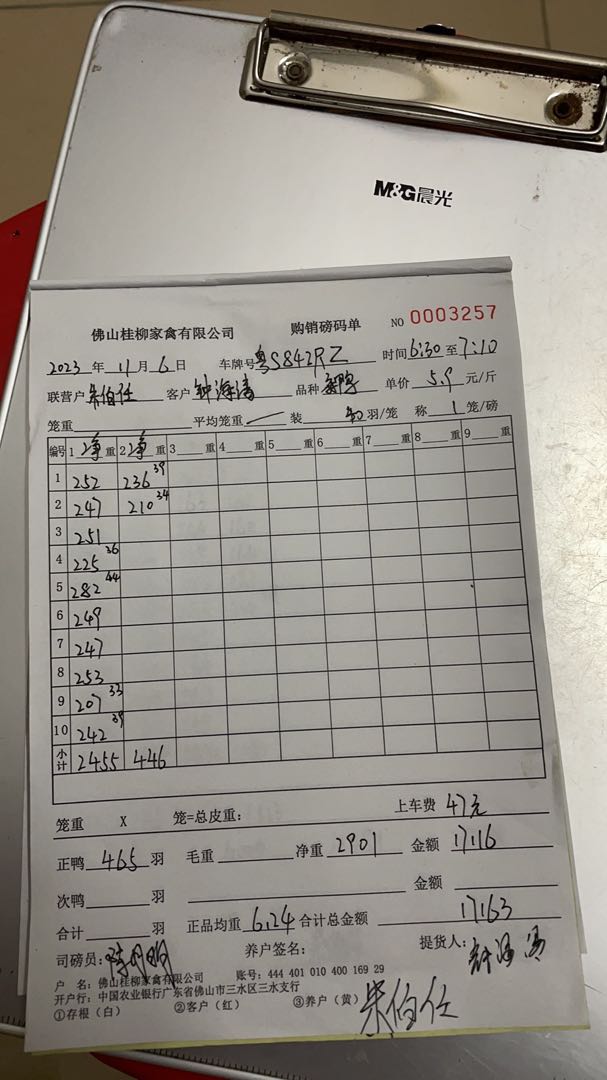 M&G晨光
佛山桂柳家禽有限公司 购销磅码单 NO 0003257
2023 年 11 月 6 日 车牌号 粤S842RZ 时间 6:30 至 7:10
联营户 朱伯任 客户 钟海清 品种 单价 5.9 元/斤
笼重 平均笼重 — 装 40 羽/笼 称 1 笼/磅
编号 1 净 重 2 净 重 3 重 4 重 5 重 6 重 7 重 8 重 9 重
1 252 236 39
2 247 210 34
3 251
4 225 36
5 282 44
6 249
7 247
8 253
9 207 33
10 242 39
小计 2455 446
笼重 X 笼=总皮重: 上车费 47元
正鸭 465 羽 毛重 净重 2901 金额 17116
次鸭 羽 金额
合计 羽 正品均重 6.24 合计总金额 17163
司磅员: 养户签名: 提货人:
户 名: 佛山桂柳家禽有限公司 账号: 444 401 010 400 169 29
开户行: 中国农业银行广东省佛山市三水区三水支行
①存根（白） ②客户（红） ③养户（黄） 朱伯任